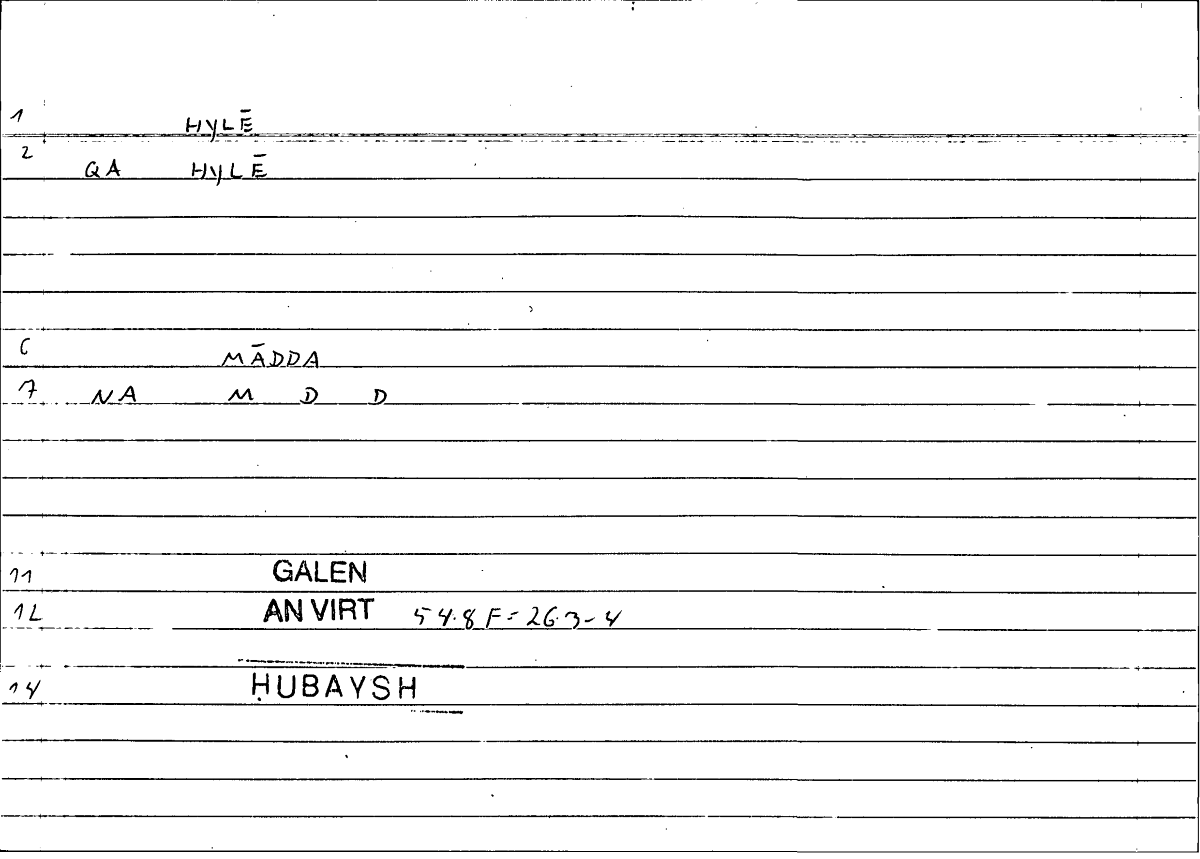 1 HYLĒ
2 QA HYLĒ
6 MĀDDA
7 NA M D D
11 GALEN
12 AN VIRT 54.8 F = 26.3-4
14 ḤUBAYSH